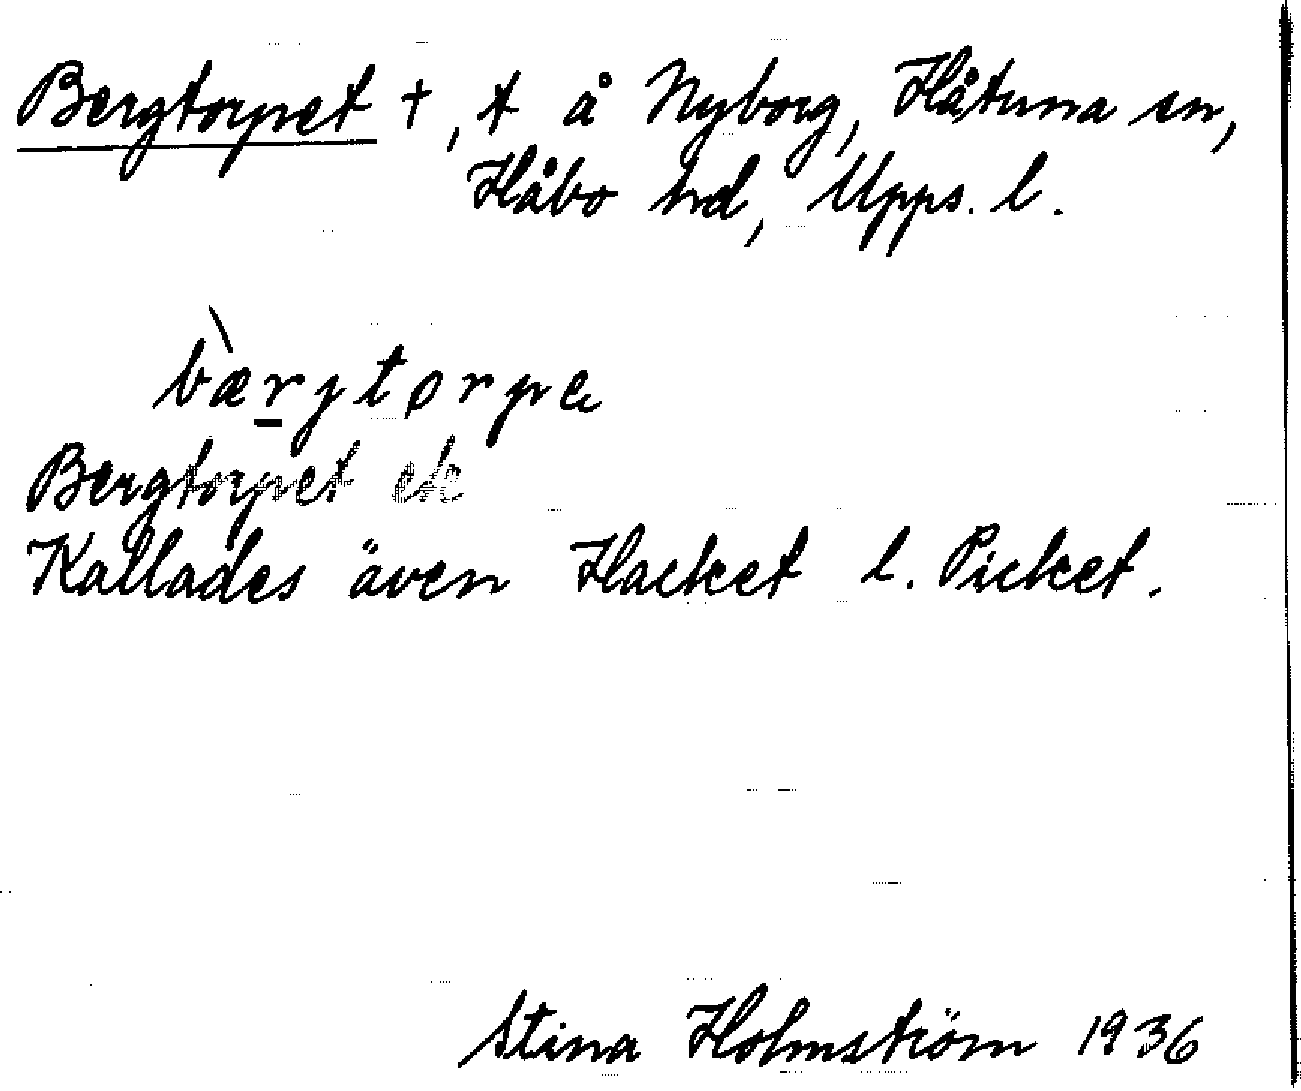 Bergtorpet †, t å Nyborg, Håtuna sn,
Håbo hd, Upps. l.
bæ̀r̲jtørpe
Bergtorpet ek
Kallades även Hacket l. Picket.
Stina Holmström 1936